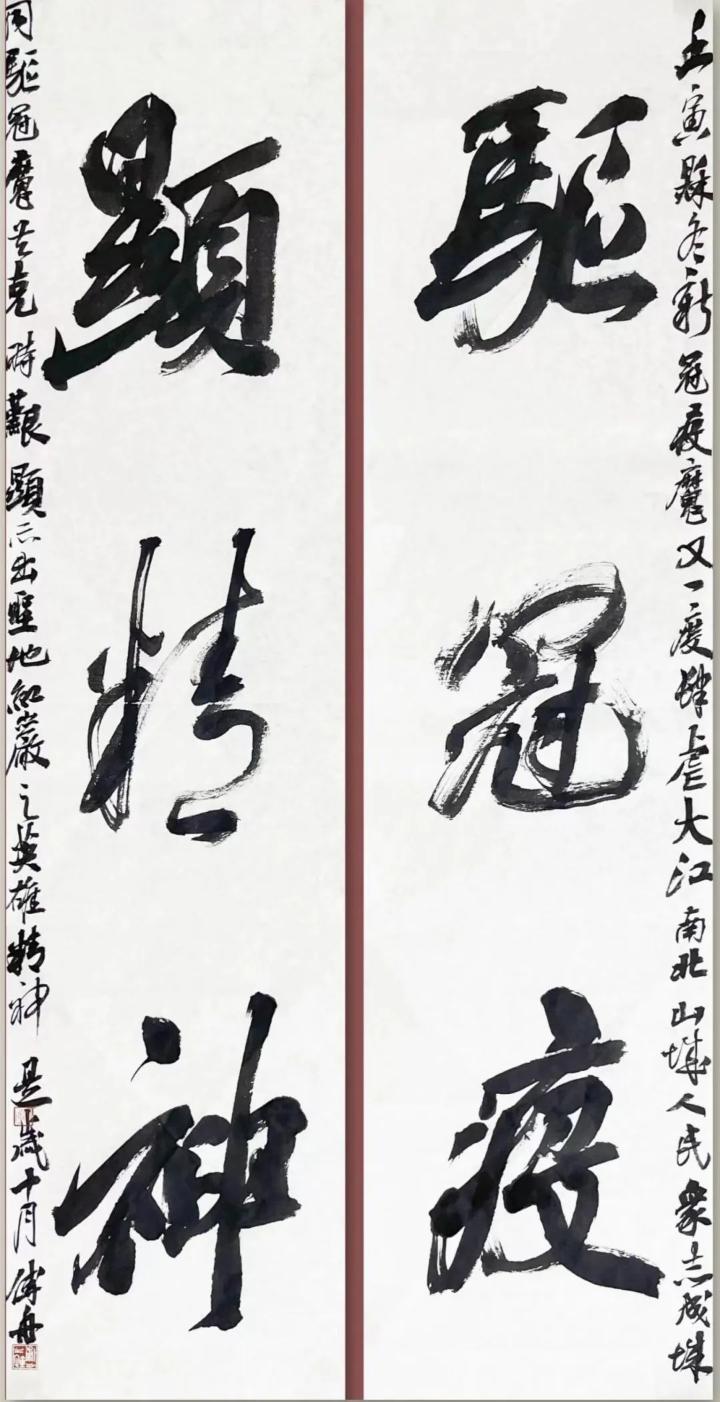 壬寅冬新冠疫魔又一度肆虐大江南北山城人民衆志成城
驅冠疫
顯精神
同驅冠魔共克時艱顯示出聖地紅巖之英雄精神是歲十月傅舟